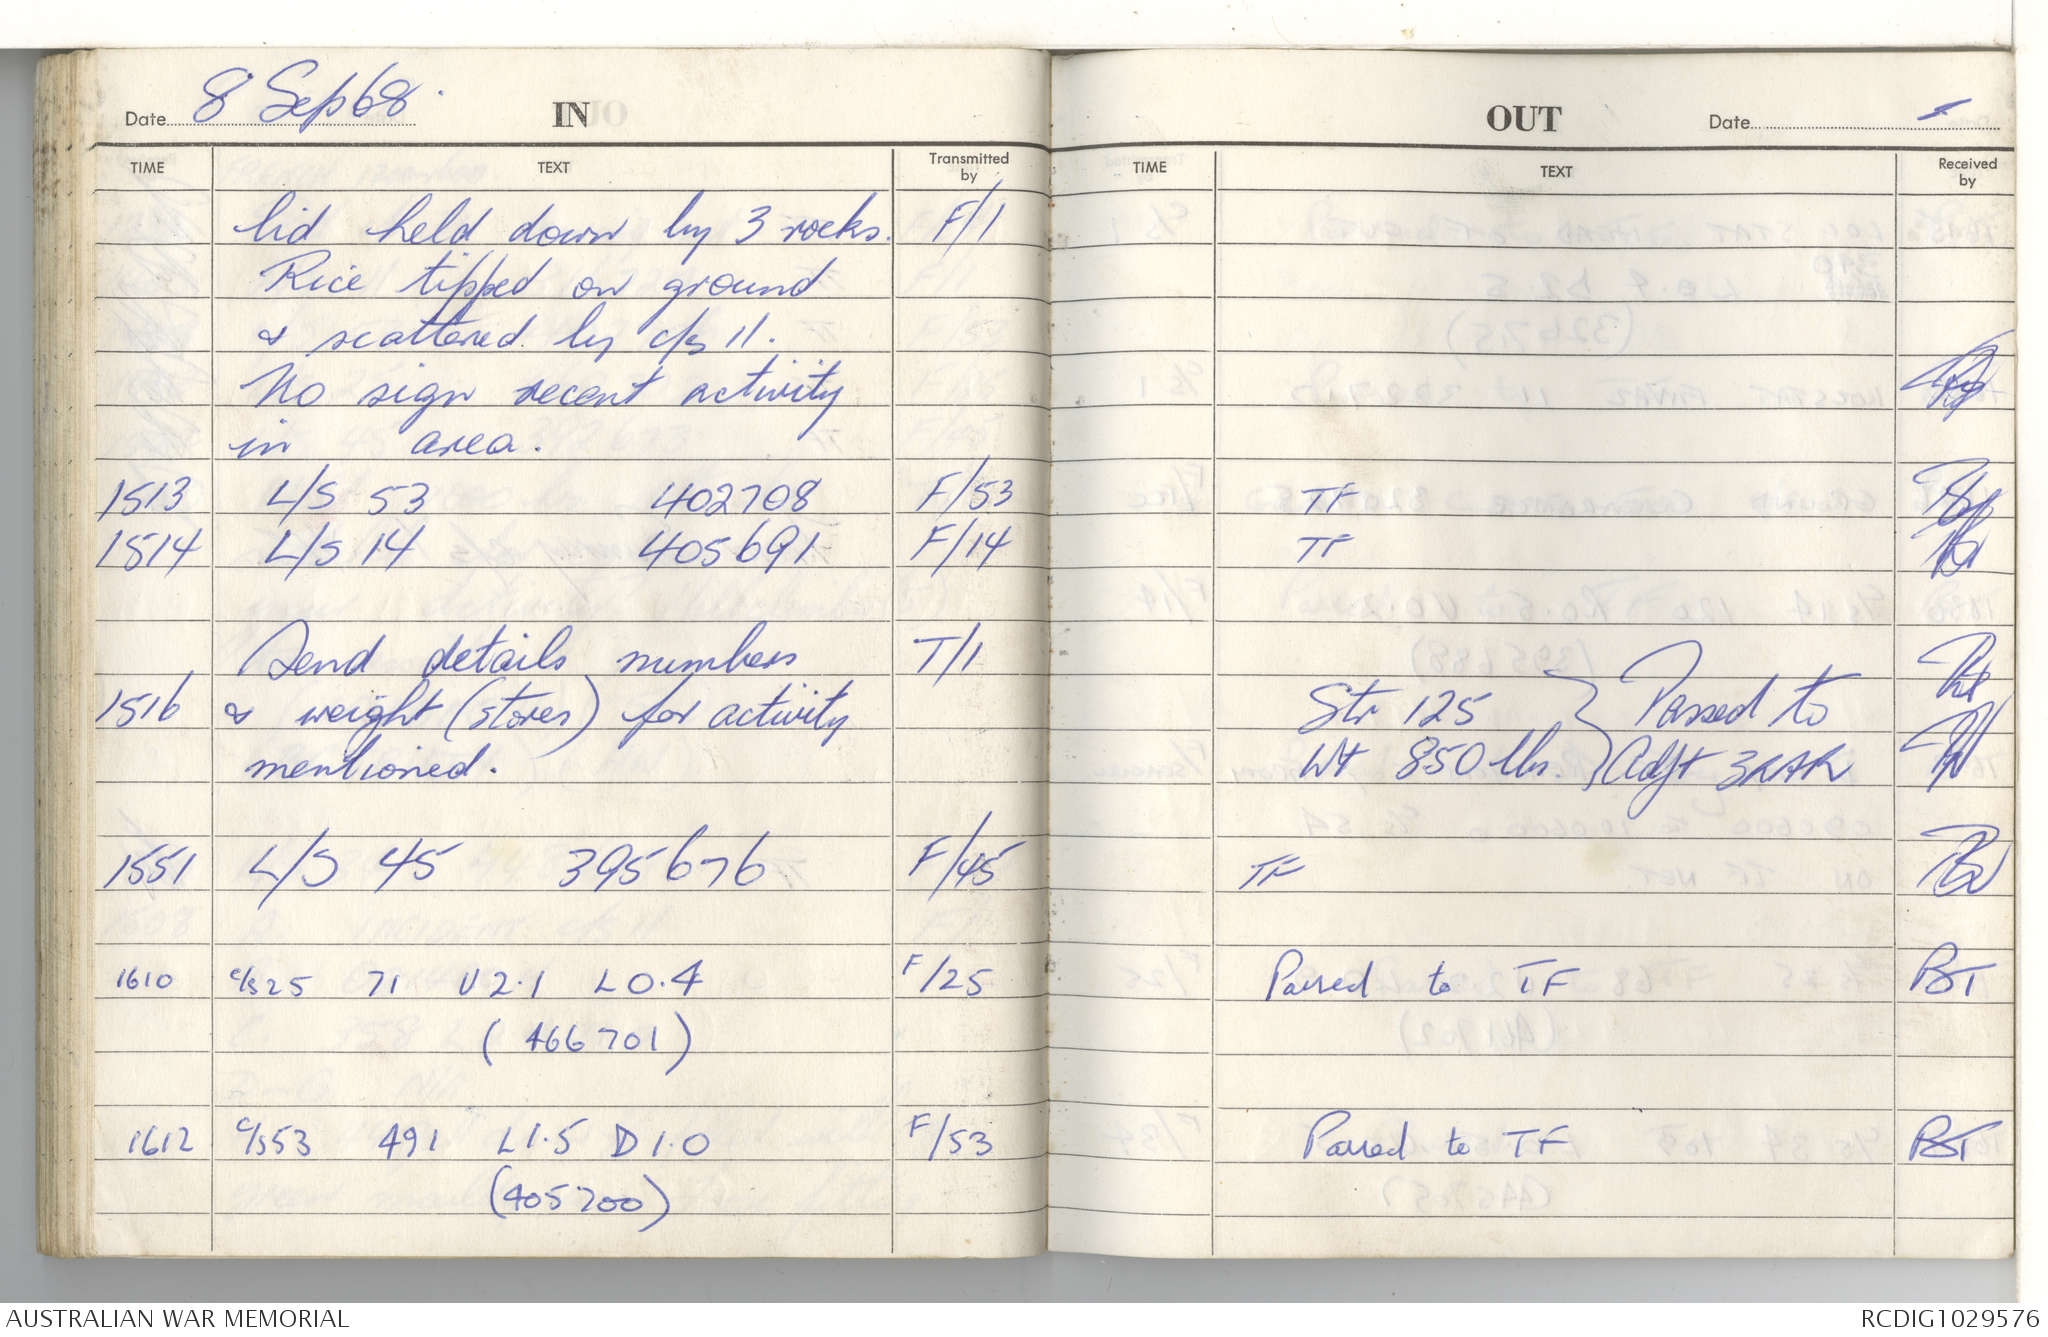 Date 8 Sep 68. IN
TIME TEXT Transmitted by
lid held down by 3 rocks. F/1
Rice tipped on ground
& scattered by c/s 11.
No sign recent activity
in area.
1513 L/S 53 402708 F/53
1514 L/S 14 405691 F/14
Send details numbers T/1
1516 & weight (stores) for activity
mentioned.
1551 L/S 45 395676 F/45
1610 c/s 25 71 U2.1 L0.4 F/25
(466701)
1612 c/s 53 491 L1.5 D1.0 F/53
(405700)
OUT Date
TIME TEXT Received by
TF
TF
Str 125 } Passed to
Wt 850 lbs. } Adjt 3RAR
TF
Passed to TF PST
Passed to TF PST
AUSTRALIAN WAR MEMORIAL RCDIG1029576